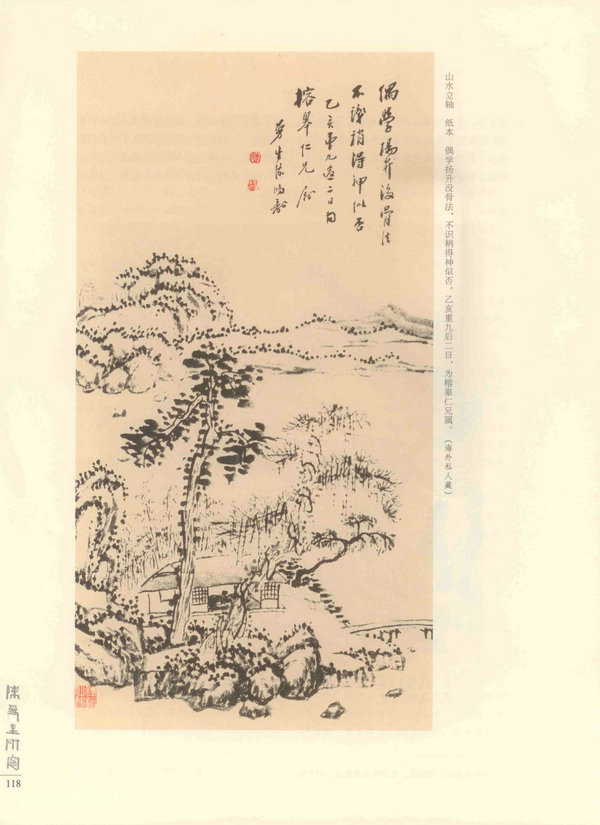 偶学揚昇没骨法
不識稍得神似否
乙亥重九後二日為
榕皋仁兄属
曼生陈鸿寿
山水立轴　纸本　偶学扬升没骨法，不识稍得神似否。乙亥重九后二日，为榕皋仁兄属。（海外私人藏）
118